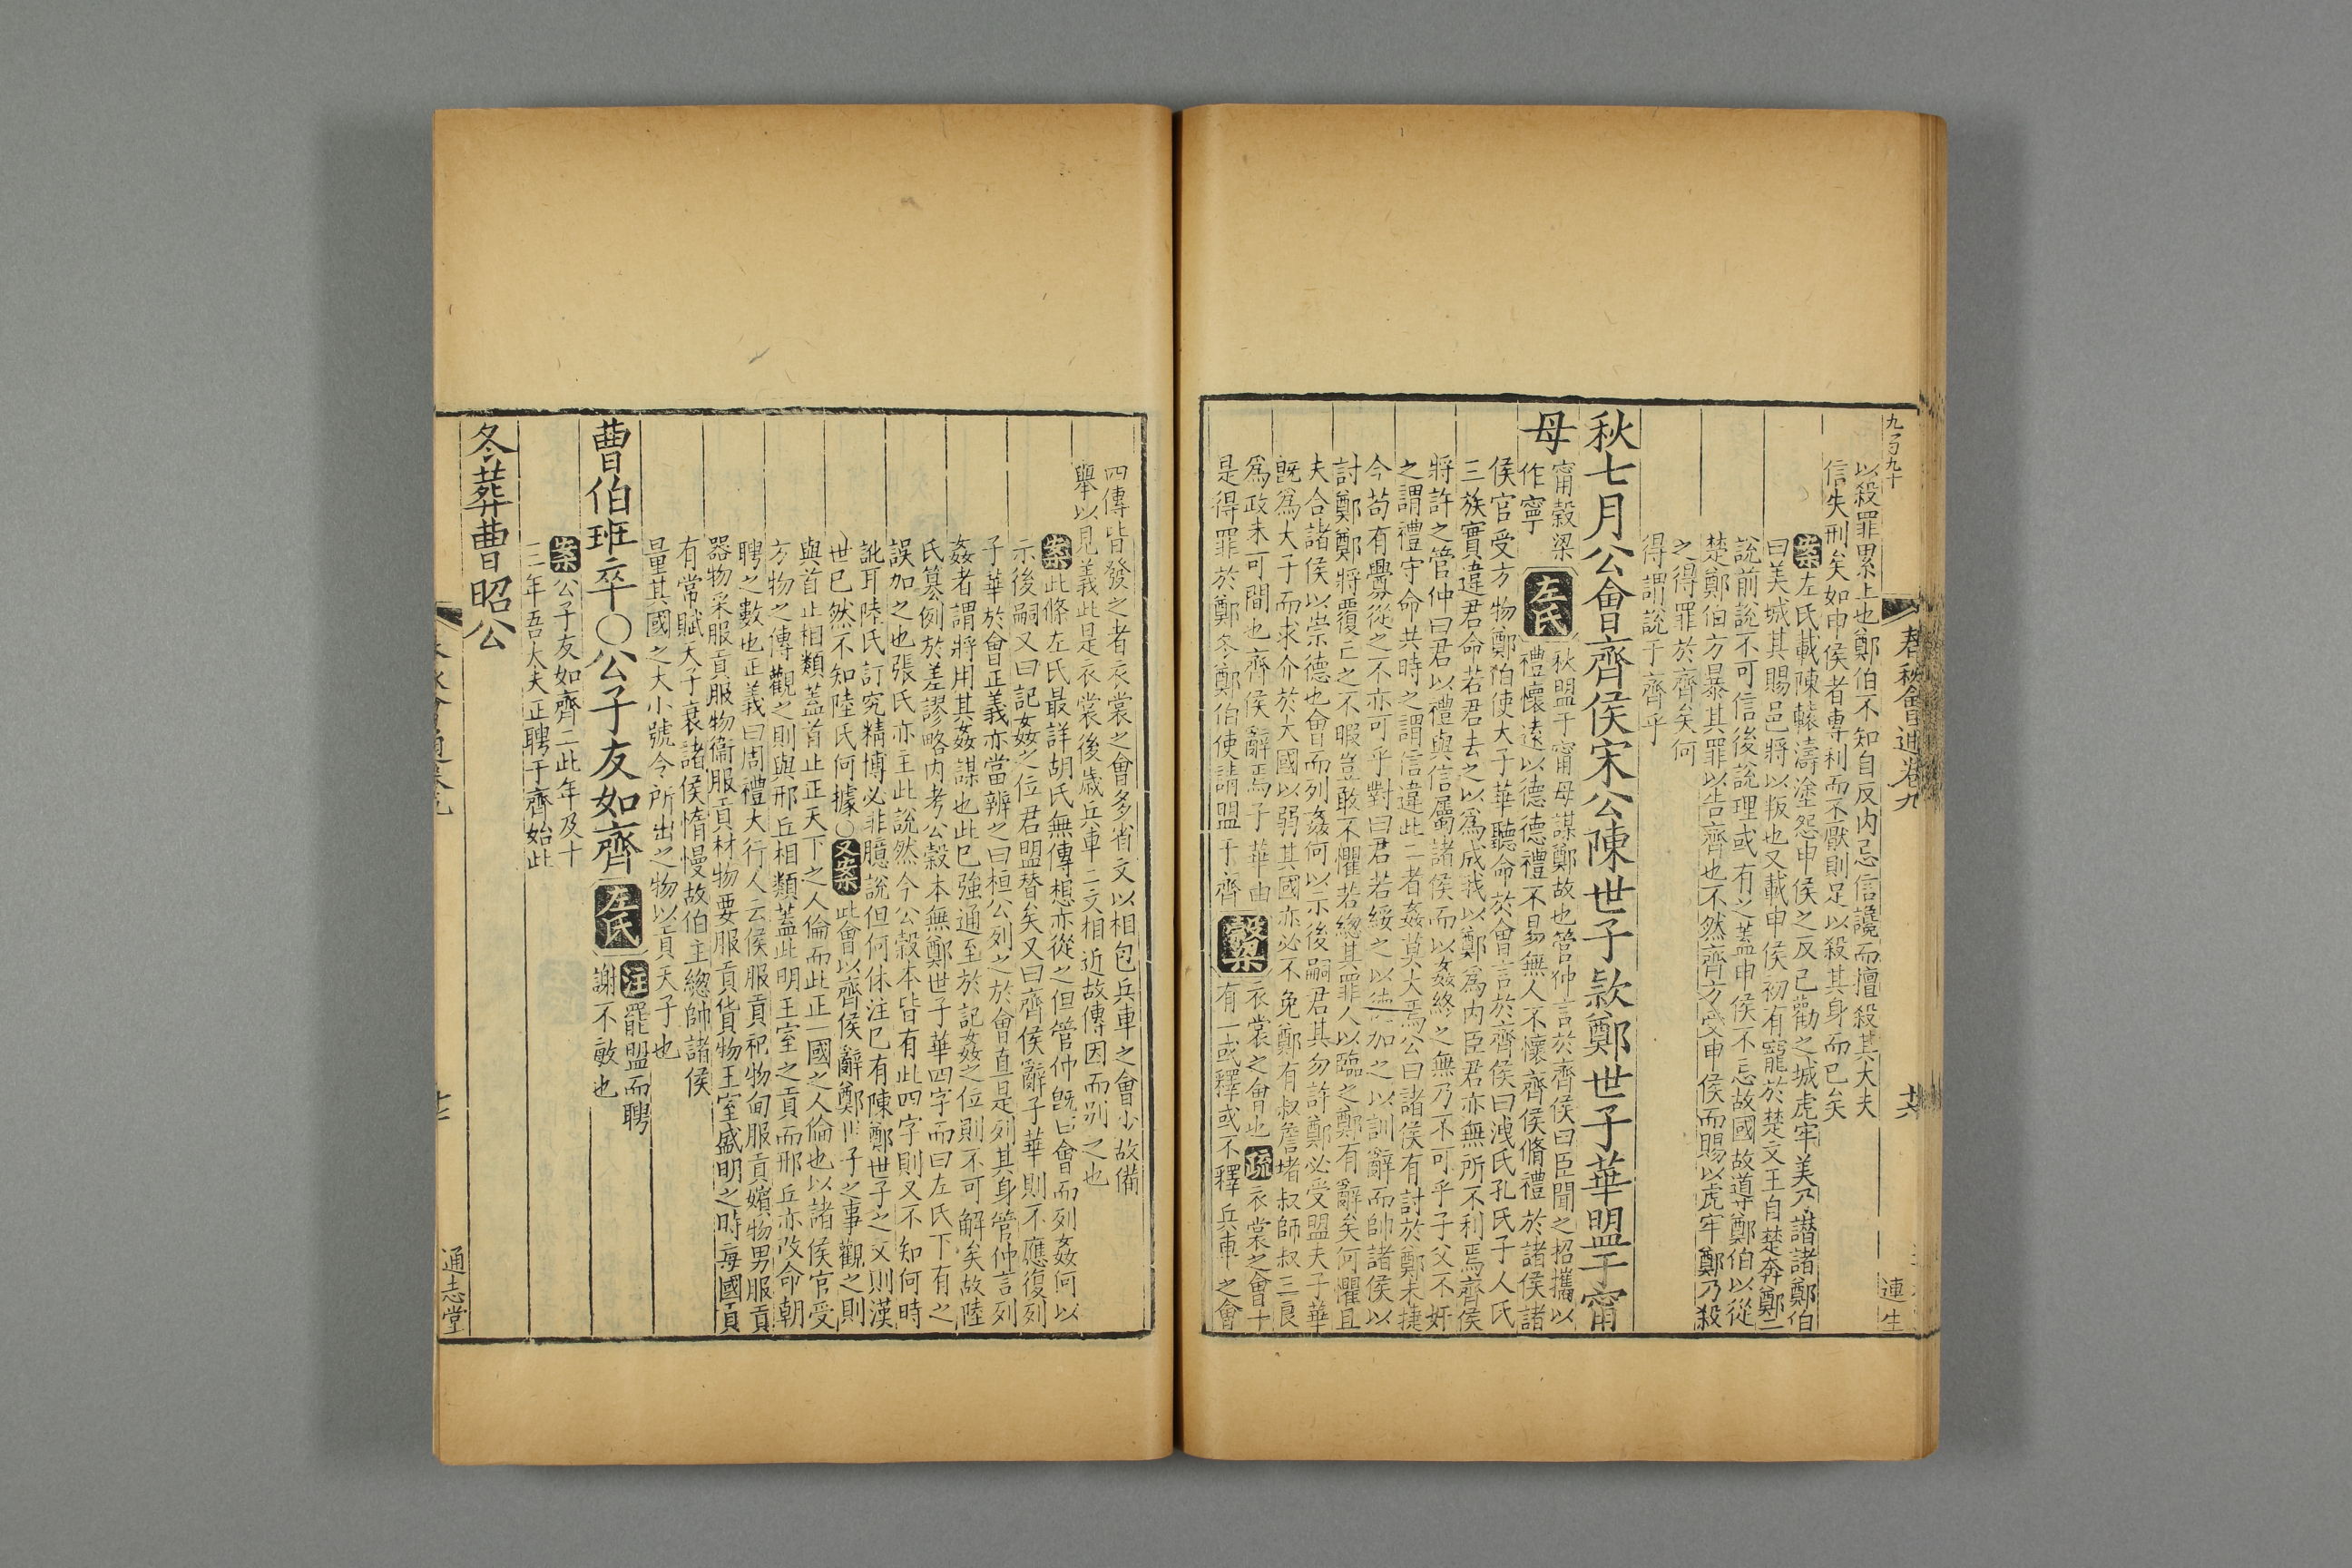 九百九十
春秋會通卷九
連生
以殺罪累上也鄭伯不知自反内忌信讒而擅殺其大夫
信失刑矣如申侯者專利而不厭則足以殺其身而已矣
案左氏載陳轅濤塗怨申侯之反已勸之城虎牢美乃譖諸鄭伯
曰美城其賜邑將以叛也又載申侯初有寵於楚文王自楚奔鄭二
說前說不可信後說理或有之蓋申侯不忘故國故導鄭伯以從
楚鄭伯方暴其罪以告齊也不然齊方受申侯而賜以虎牢鄭乃殺
之得罪於齊矣何
得謂說于齊乎
秋七月公會齊侯宋公陳世子款鄭世子華盟于甯
母
甯穀梁
作寧
左氏
秋盟于甯母謀鄭故也管仲言於齊侯曰臣聞之招攜以
禮懷遠以德德禮不易無人不懷齊侯脩禮於諸侯諸
侯官受方物鄭伯使大子華聽命於會言於齊侯曰洩氏孔氏子人氏
三族實違君命若君去之以爲成我以鄭爲内臣君亦無所不利焉齊侯
將許之管仲曰君以禮與信屬諸侯而以姦終之無乃不可乎子父不奸
之謂禮守命共時之謂信違此二者姦莫大焉公曰諸侯有討於鄭未捷
今苟有釁從之不亦可乎對曰君若綏之以德加之以訓辭而帥諸侯以
討鄭鄭將覆亡之不暇豈敢不懼若緫其罪人以臨之鄭有辭矣何懼且
夫合諸侯以崇德也會而列姦何以示後嗣君其勿許鄭必受盟夫子華
旣爲大子而求介於大國以弱其國亦必不免鄭有叔詹堵叔師叔三良
爲政未可間也齊侯辭焉子華由
是得罪於鄭冬鄭伯使請盟于齊
穀梁
衣裳之會也疏衣裳之會十
有一或釋或不釋兵車之會
四傳皆發之者衣裳之會多省文以相包兵車之會少故備
舉以見義此是衣裳後歲兵車二文相近故傳因而別之也
案此條左氏最詳胡氏無傳想亦從之但管仲旣曰會而列姦何以
示後嗣又曰記姦之位君盟替矣又曰齊侯辭子華則不應復列
子華於會正義亦當辨之曰桓公列之於會直是列其身管仲言列
姦者謂將用其姦謀也此已強通至於記姦之位則不可解矣故陸
氏纂例於差謬略内考公穀本無鄭世子華四字而曰左氏下有之
誤加之也張氏亦主此說然今公穀本皆有此四字則又不知何時
訛耳陸氏訂究精博必非臆說但何休注已有陳鄭世子之文則漢
世已然不知陸氏何據○又案此會以齊侯辭鄭世子之事觀之則
與首止相類蓋首止正天下之人倫而此正一國之人倫也以諸侯官受
方物之傳觀之則與邢丘相類蓋此明王室之貢而邢丘亦改命朝
聘之數也正義曰周禮大行人云侯服貢祀物甸服貢嬪物男服貢
器物采服貢服物衞服貢材物要服貢貨物王室盛明之時每國貢
有常賦天子衰諸侯惰慢故伯主緫帥諸侯
量其國之大小號令所出之物以貢天子也
曹伯班卒○公子友如齊
左氏
注罷盟而聘
謝不敏也
案公子友如齊二此年及十
三年吾大夫正聘于齊始此
冬葬曹昭公
通志堂